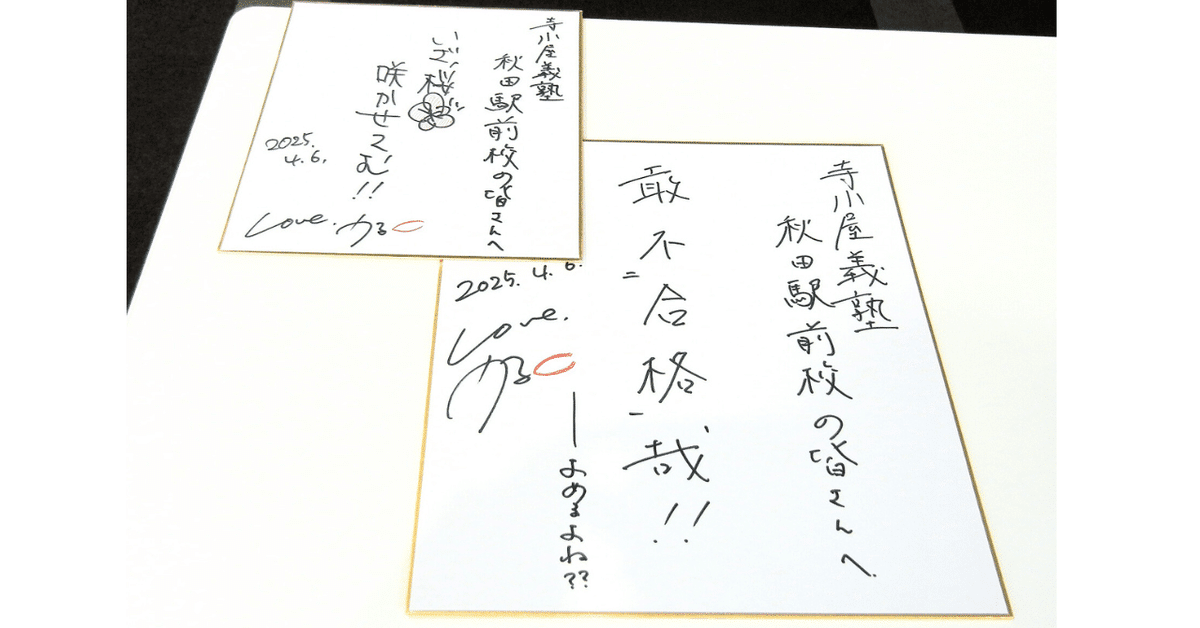 寺小屋義塾
秋田駅前校の皆さんへ
いざ、桜
咲かせてむ!!
2025.
4.6.
Love. かる
寺小屋義塾
秋田駅前校の皆さんへ.
敢不二合格一哉!!
—よめるよね??
2025. 4. 6.
Love.
かる